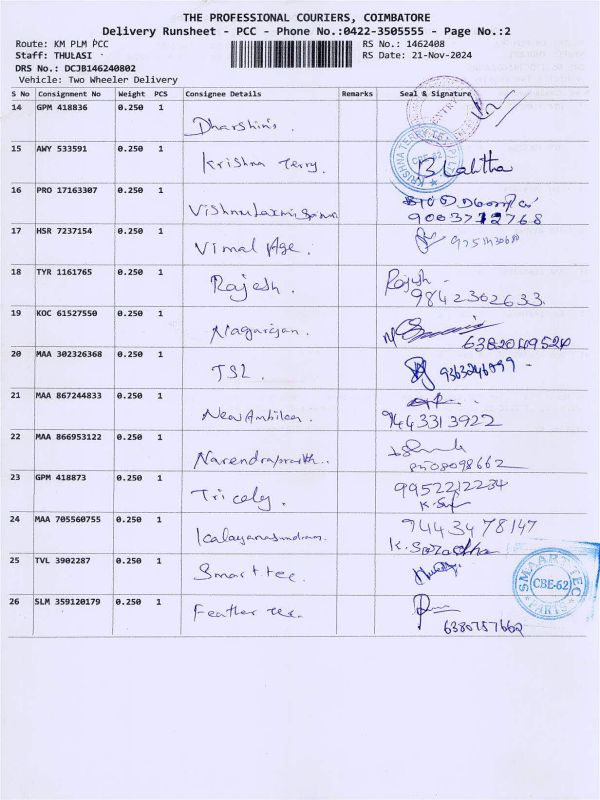 THE PROFESSIONAL COURIERS, COIMBATORE
Delivery Runsheet - PCC - Phone No.:0422-3505555 - Page No.:2
Route: KM PLM PCC
RS No.: 1462408
Staff: THULASI
RS Date: 21-Nov-2024
DRS No.: DCJB146240802
Vehicle: Two Wheeler Delivery
S No Consignment No Weight PCS Consignee Details Remarks Seal & Signature
14 GPM 418836 0.250 1
Dharshini.
ENTRY
15 AWY 533591 0.250 1
Krishna Terry.
KRISHNA TERRY TEX
CBE-62
B Lalitha
16 PRO 17163307 0.250 1
9003712768
17 HSR 7237154 0.250 1
Vimal Age.
18 TYR 1161765 0.250 1
Rajesh.
Rajesh.
9842302633
19 KOC 61527550 0.250 1
Nagarajan.
6382049524
20 MAA 302326368 0.250 1
TSL.
21 MAA 867244833 0.250 1
New Ambika.
9443313922
22 MAA 866953122 0.250 1
Narendraprasth..
8508098662
23 GPM 418873 0.250 1
9952212234
24 MAA 705560755 0.250 1
Kalayanasundram.
9443478147
25 TVL 3902287 0.250 1
Smart tec.
SMAART TEC
CBE-62
PARTS
26 SLM 359120179 0.250 1
Feather tex.
6380757662